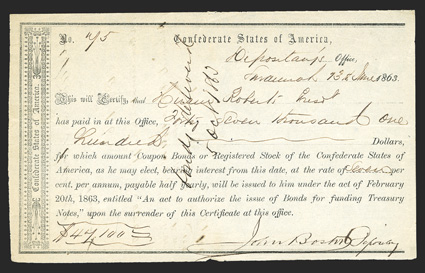 No. 75 Confederate States of America,
Depositary's Office,
Savannah 13th June 1863.
This will Certify, that Roberts
has paid in at this Office, Forty Seven thousand one
Hundred Dollars,
for which amount Coupon Bonds or Registered Stock of the Confederate States of
America, as he may elect, bearing interest from this date, at the rate of Seven per
cent. per annum, payable half yearly, will be issued to him under the act of February
20th, 1863, entitled "An act to authorize the issue of Bonds for funding Treasury
Notes," upon the surrender of this Certificate at this office.
$47,100 John Boston Depositary
Confederate States of America.
Bonds
1863